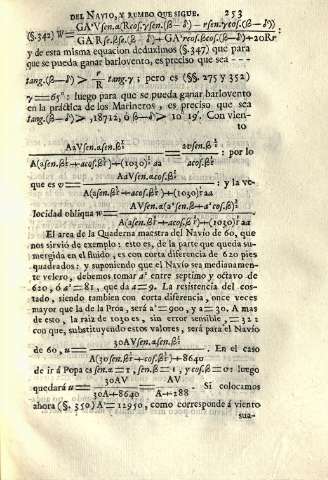 DEL NAVIO, Y RUMBO QUE SIGUE. 253
(§.342) W= GA²Vsen.α(Rcos.γsen.(β−δ) − rsen.γcos.(β−δ)) / GA Rsen.βse.(β−δ) + GA²rcos.βcos.(β−δ)+20Rr :
y de esta misma equacion deduximos (§.347) que para
que se pueda ganar barlovento, es preciso que sea - - -
tang.(β−δ) > r/R tang.γ; pero es (§§ 275 y 352)
γ=65°: luego para que se pueda ganar barlovento
en la práctica de los Marineros, es preciso que sea
tang.(β−δ) > ,18712, ó β−δ > 10° 19'. Con vien-
to
A2Vsen.α.sen.β½ / A(asen.β½+acos.β½)+(1030)½aa = avsen.β½ / acos.β½ : por lo
que es v= AaVsen.α.cos.β½ / A(asen.β½+acos.β½)+(1030)½aa : y la ve-
locidad obliqua u= AVsen.α(a²sen.β+a²cos.β)½ / A(asen.β½+acos.β½)+(1030)½aa
El area de la Quaderna maestra del Navio de 60, que
nos sirvió de exemplo: esto es, de la parte que queda su-
mergida en el fluido, es con corta diferencia de 620 pies
quadrados: y suponiendo que el Navio sea medianamen-
te velero, debemos tomar a² entre septimo y octavo de
620, ó a²=81, que da a=9. La resistencia del cos-
tado, siendo tambien con corta diferencia, once veces
mayor que la de la Proa, será a²=900, y a=30. A mas
de esto, la raiz de 1030 es, sin error sensible, =32:
con que, substituyendo estos valores, será para el Navio
de 60, u= 30AVsen.α.sen.β½ / A(30sen.β½+cos.β½)+8640 . En el caso
de ir á Popa es sen.α=1, sen.β=1, y cos.β=0: luego
quedará u= 30AV / 30A+8640 = AV / A+288 . Si colocamos
ahora (§. 350) A=12950, como corresponde á viento
sua-